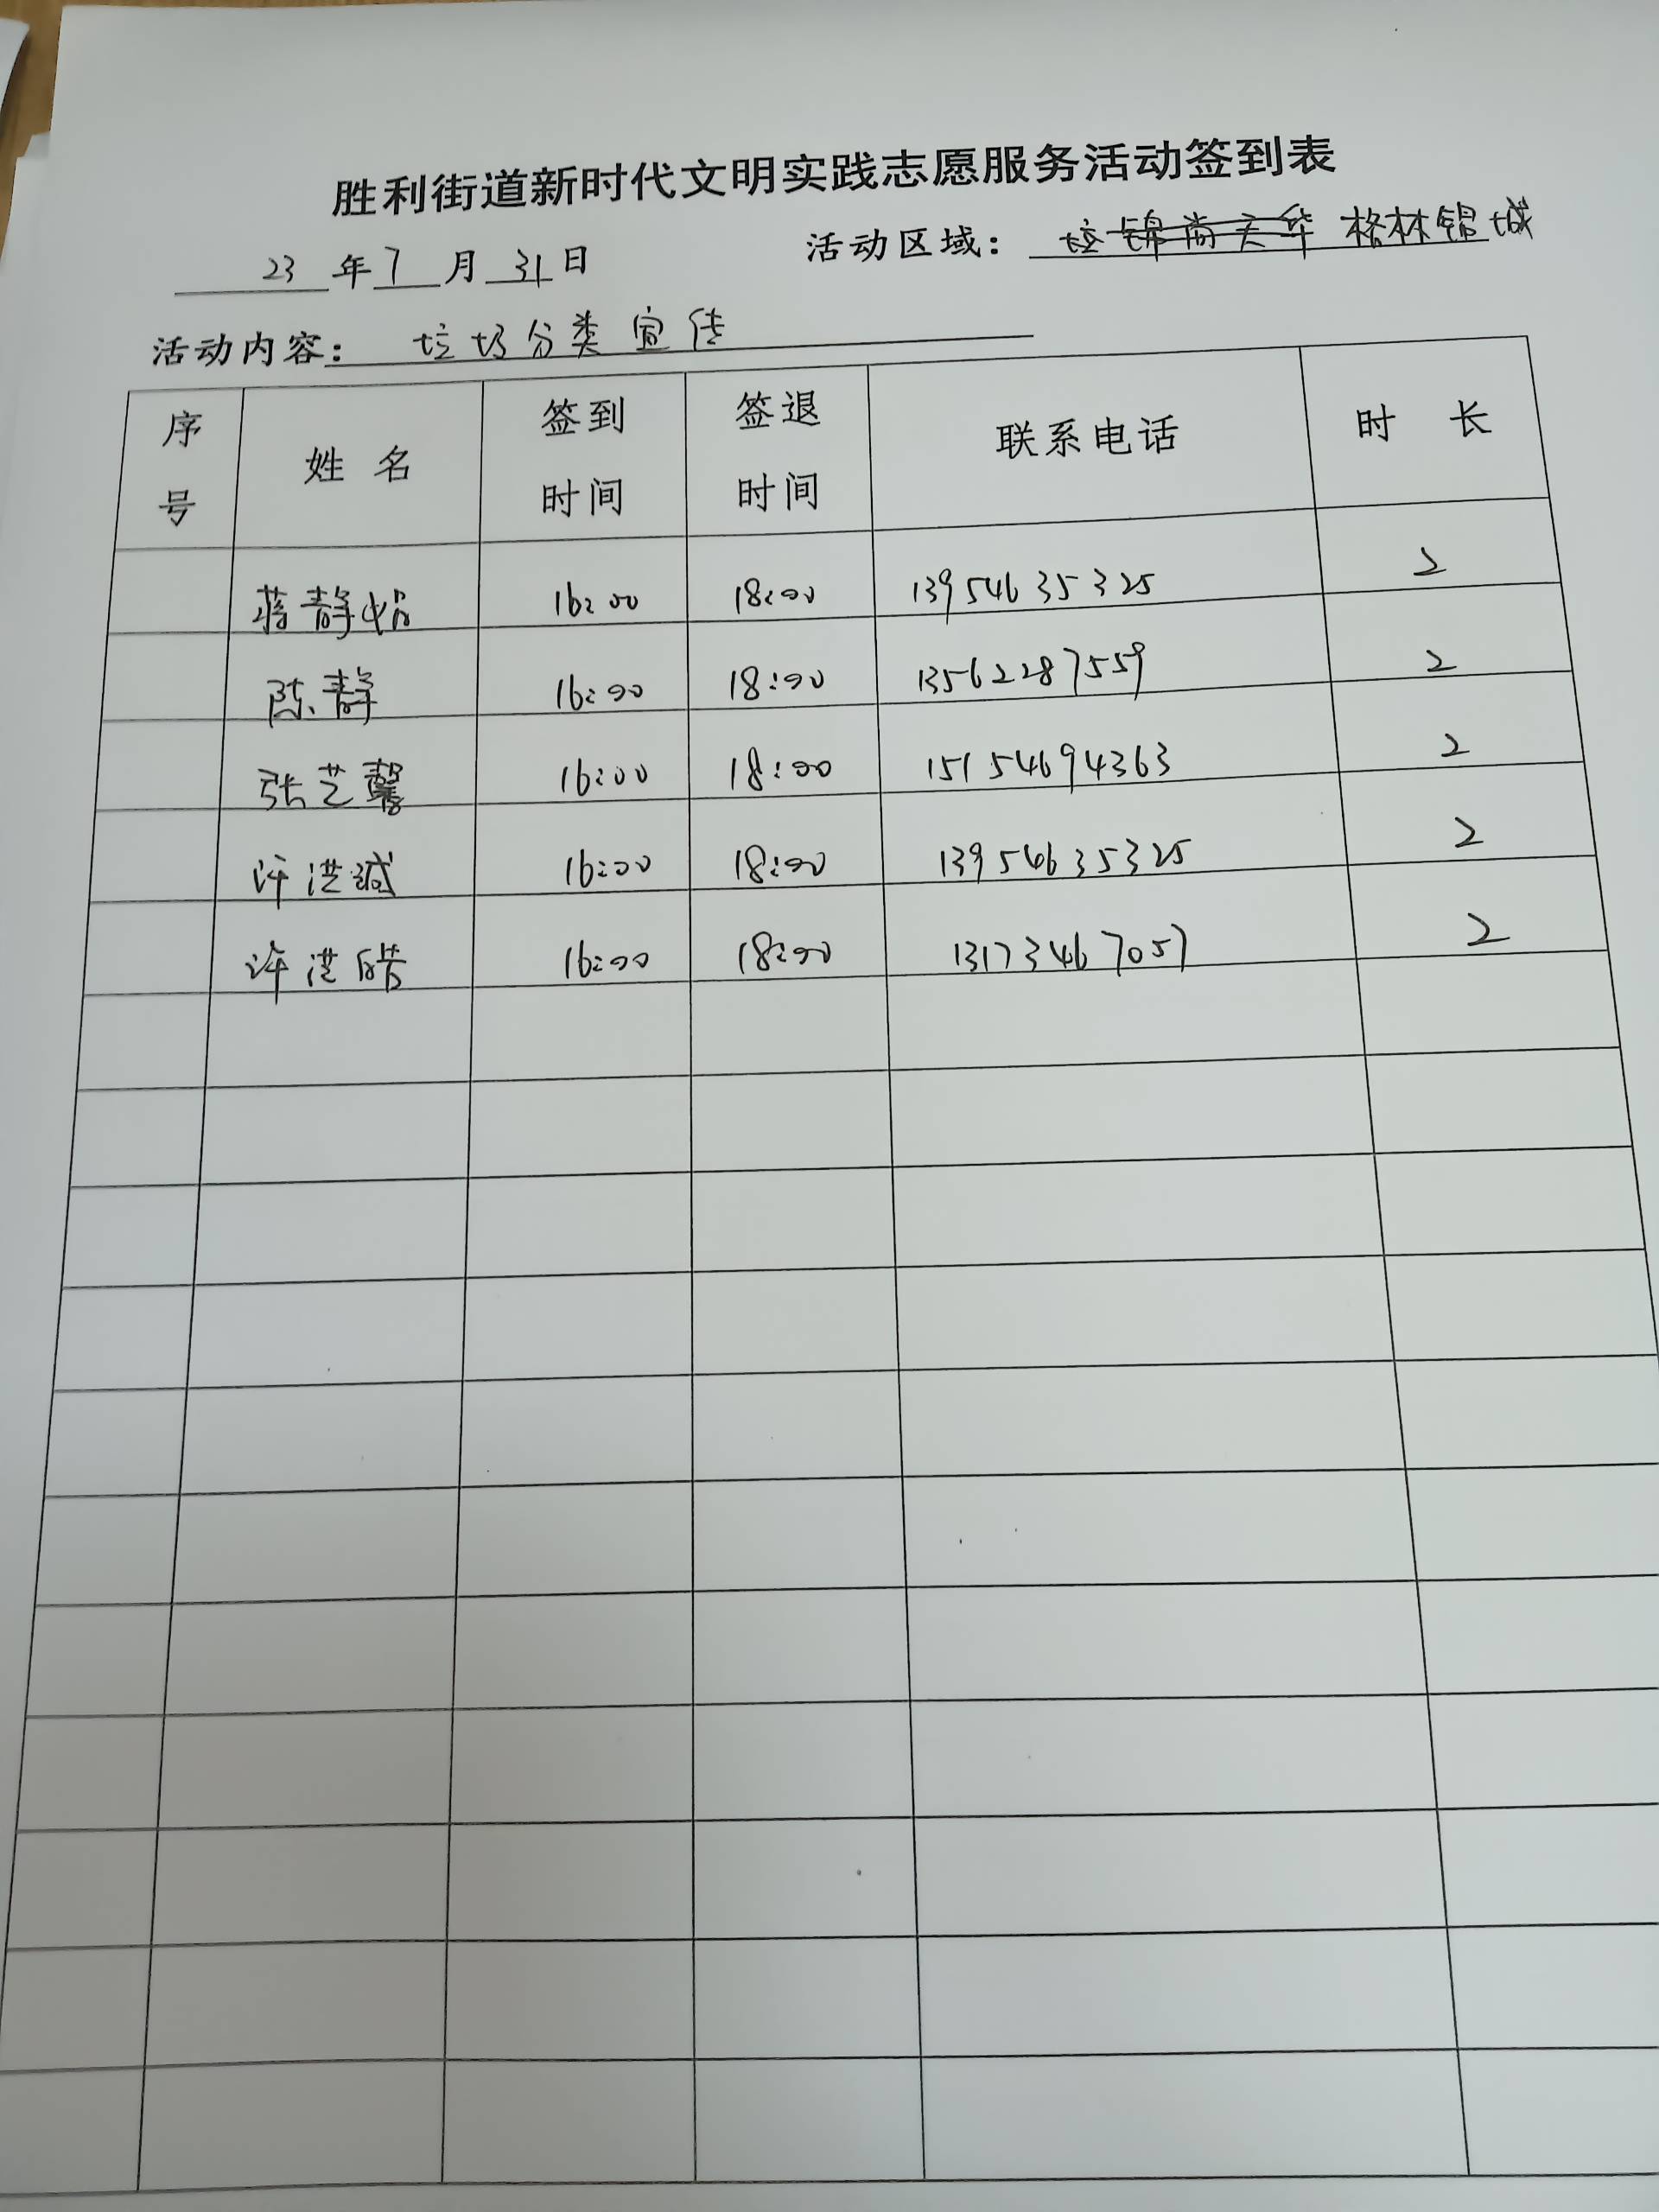 胜利街道新时代文明实践志愿服务活动签到表
23 年 7 月 31 日 活动区域： 锦尚天华 格林锦城
活动内容： 垃圾分类宣传
序号 姓名 签到时间 签退时间 联系电话 时长
蒋静怡 16:00 18:00 13954635325 2
陈静 16:00 18:00 13562287559 2
张艺馨 16:00 18:00 15154694363 2
许洪诚 16:00 18:00 13954635325 2
许洪皓 16:00 18:00 13173467057 2